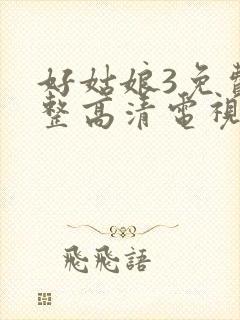 好姑娘3免費
整高清電視
飛飛語